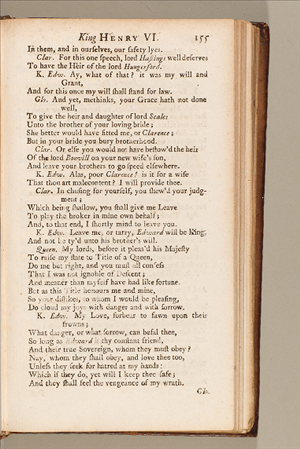 King HENRY VI. 155
In them, and in ourselves, our safety lyes.
Clar. For this one speech, lord Hastings well deserves
To have the Heir of the lord Hungerford.
K. Edw. Ay, what of that? it was my will and
Grant,
And for this once my will shall stand for law.
Glo. And yet, methinks, your Grace hath not done
well,
To give the heir and daughter of lord Scales
Unto the brother of your loving bride;
She better would have fitted me, or Clarence;
But in your bride you bury brotherhood.
Clar. Or else you would not have bestow'd the heir
Of the lord Bonvill on your new wife's son,
And leave your brothers to go speed elsewhere.
K. Edw. Alas, poor Clarence! is it for a wife
That thou art malecontent? I will provide thee.
Clar. In chusing for yourself, you shew'd your judg-
ment;
Which being shallow, you shall give me Leave
To play the broker in mine own behalf;
And, to that end, I shortly mind to leave you.
K. Edw. Leave me, or tarry, Edward will be King,
And not be ty'd unto his brother's will.
Queen. My lords, before it pleas'd his Majesty
To raise my state to Title of a Queen,
Do me but right, and you must all confess
That I was not ignoble of Descent;
And meaner than myself have had like fortune.
But as this Title honours me and mine,
So your dislikes, to whom I would be pleasing,
Do cloud my joys with danger and with sorrow.
K. Edw. My Love, forbear to fawn upon their
frowns;
What danger, or what sorrow, can befal thee,
So long as Edward is thy constant friend,
And their true Sovereign, whom they must obey?
Nay, whom they shall obey, and love thee too,
Unless they seek for hatred at my hands:
Which if they do, yet will I keep thee safe;
And they shall feel the vengeance of my wrath.
Glo.